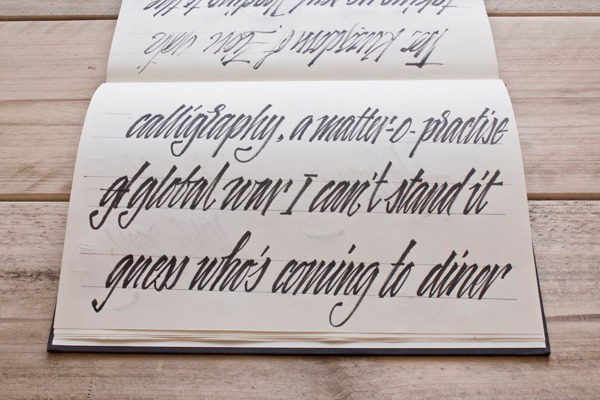 The Kingdom of
to the
calligraphy, a matter-o-practise
of global war I can't stand it
guess who's coming to diner